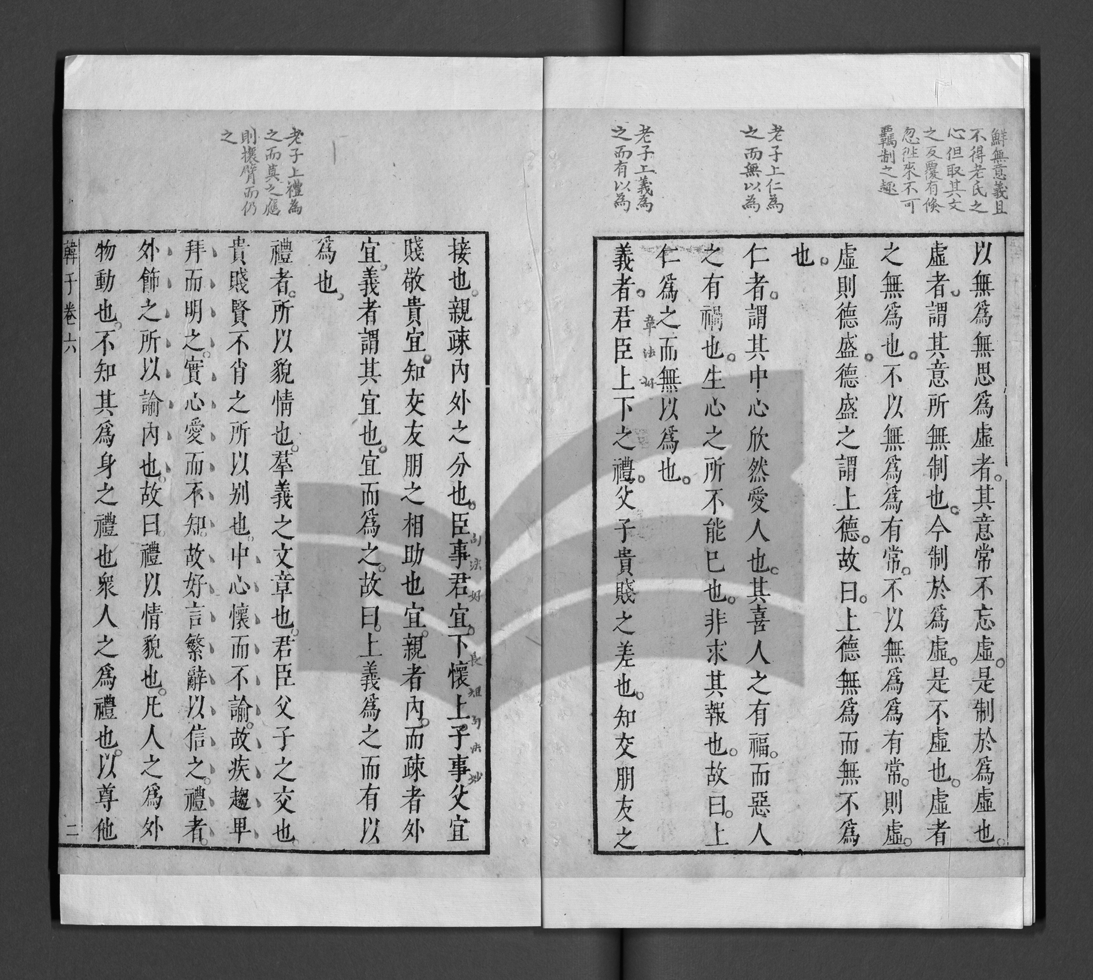 鮮無意義且
不得老氏之
心但取其文
之反覆有倏
忽往來不可
羈制之趣
老子上仁為
之而無以為
老子上義為
之而有以為
以無爲無思爲虛者。其意常不忘虛。是制於爲虛也。
虛者。謂其意所無制也。今制於爲虛。是不虛也。虛者
之無爲也。不以無爲爲有常。不以無爲爲有常。則虛。
虛則德盛。德盛之謂上德。故曰。上德無爲而無不爲
也。
仁者。謂其中心欣然愛人也。其喜人之有福。而惡人
之有禍也。生心之所不能已也。非求其報也。故曰。上
仁爲之而無以爲也。
章法好
義者。君臣上下之禮。父子貴賤之差也。知交朋友之
老子上禮為
之而莫之應
則攘臂而仍
之
接也。親疎內外之分也。臣事君宜。下懷上。子事父宜
句法好
長短句法妙
賤敬貴宜。知友友朋之相助也宜。親者內。而疎者外
宜。義者謂其宜也。宜而爲之。故曰。上義爲之而有以
爲也。
禮者。所以貌情也。羣義之文章也。君臣父子之交也
貴賤賢不肖之所以别也。中心懷而不諭。故疾趨卑
拜而明之。實心愛而不知。故好言繁辭以信之。禮者。
外飾之所以諭內也。故曰。禮以情貌也。凡人之爲外
物動也。不知其爲身之禮也衆人之爲禮也。以尊他
韓子卷六
二